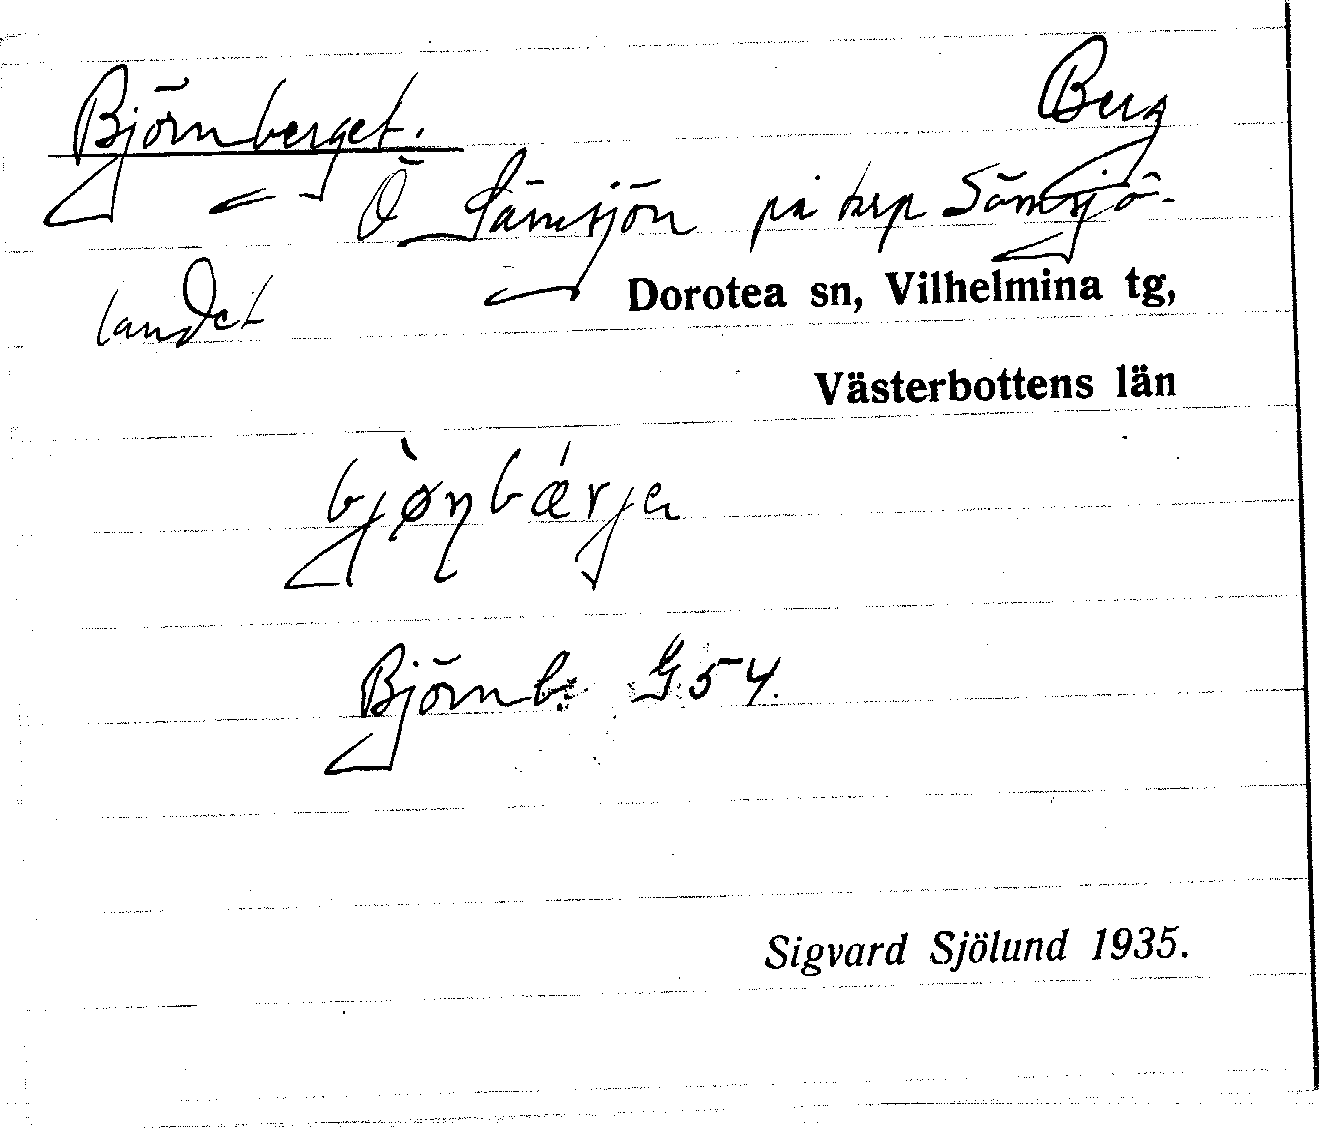 Björnberget. Berg
Ö Sämsjön på krp Sämsjö-
landet
Dorotea sn, Vilhelmina tg,
Västerbottens län
bjø̀ɳbǽrjɐ
Björnb: G54.
Sigvard Sjölund 1935.